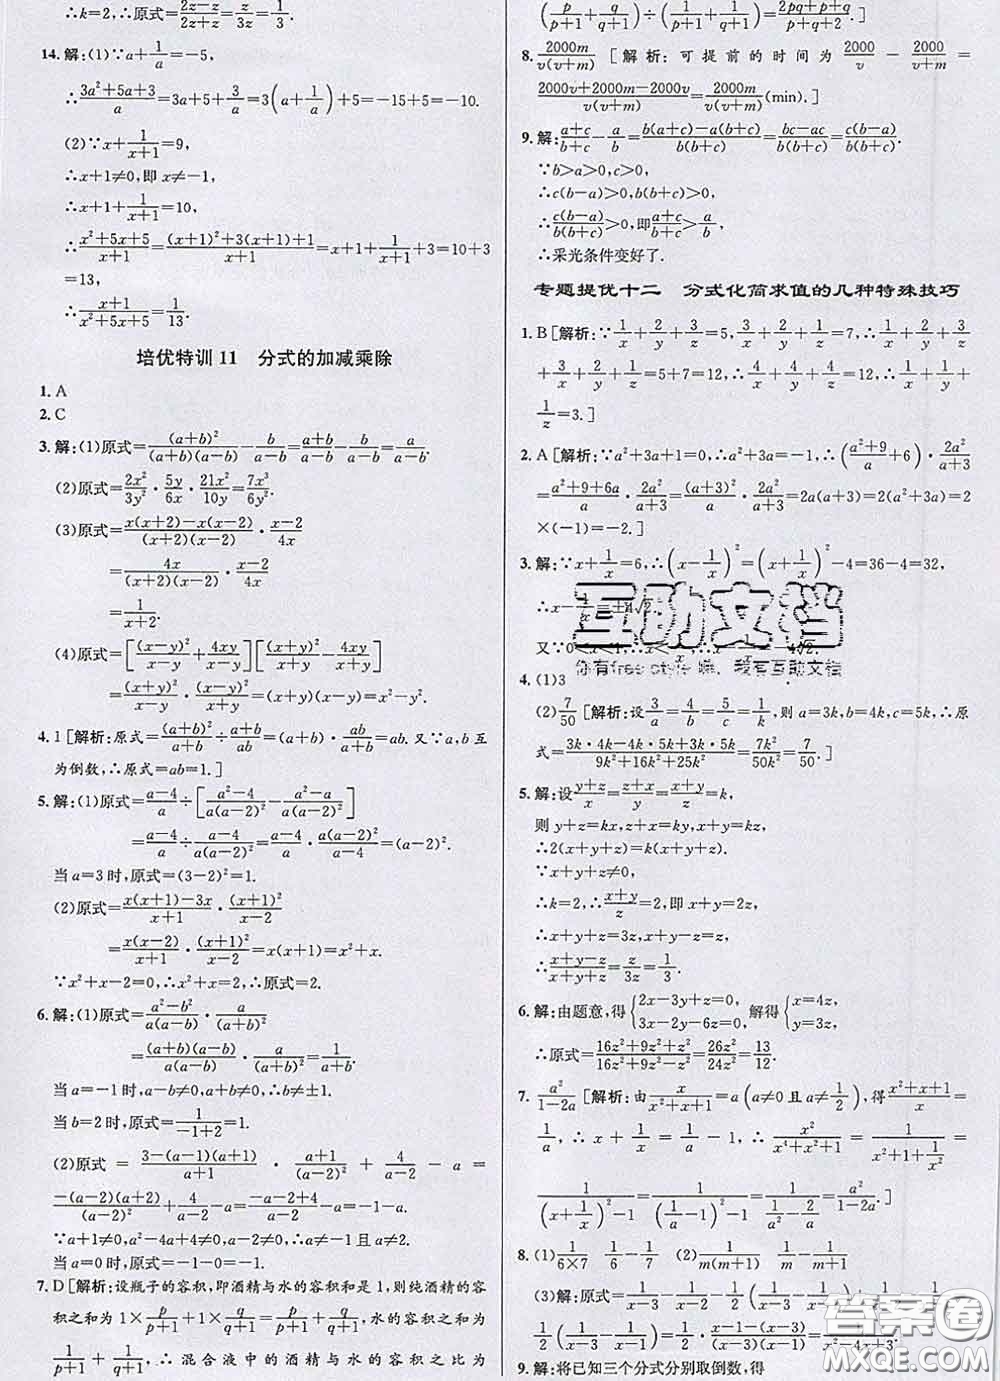 ∴k=2,∴原式=(2z-z)/(2z+z)=z/(3z)=1/3.
14.解:(1)∵a+1/a=-5,
∴(3a²+5a+3)/a=3a+5+3/a=3(a+1/a)+5=-15+5=-10.
(2)∵x+1/(x+1)=9,
∴x+1≠0,即x≠-1,
∴x+1+1/(x+1)=10,
∴(x²+5x+5)/(x+1)=((x+1)²+3(x+1)+1)/(x+1)=x+1+1/(x+1)+3=10+3
=13,
∴(x+1)/(x²+5x+5)=1/13.
培优特训11 分式的加减乘除
1.A
2.C
3.解:(1)原式=(a+b)²/((a+b)(a-b))-b/(a-b)=(a+b)/(a-b)-b/(a-b)=a/(a-b).
(2)原式=2x²/3y²·5y/6x·21x²/10y=7x³/6y².
(3)原式=(x(x+2)-x(x-2))/((x+2)(x-2))·(x-2)/4x
=4x/((x+2)(x-2))·(x-2)/4x
=1/(x+2).
(4)原式=[(x-y)²/(x-y)+4xy/(x-y)][(x+y)²/(x+y)-4xy/(x+y)]
=(x+y)²/(x-y)·(x-y)²/(x+y)=(x+y)(x-y)=x²-y².
4.1[解析:原式=(a+b)²/(a+b)÷(a+b)/ab=(a+b)·ab/(a+b)=ab.又∵a,b互
为倒数,∴原式=ab=1.]
5.解:(1)原式=(a-4)/a÷[(a²-4)/(a(a-2)²)-(a²-a)/(a(a-2)²)]
=(a-4)/a÷(a-4)/(a(a-2)²)=(a-4)/a·(a(a-2)²)/(a-4)=(a-2)².
当a=3时,原式=(3-2)²=1.
(2)原式=(x(x+1)-3x)/(x+1)·(x+1)²/(x-2)
=x(x-2)/(x+1)·(x+1)²/(x-2)=x(x+1)=x²+x.
∵x²+x-2=0,∴x²+x=2,∴原式=2.
6.解:(1)原式=(a²-b²)/(a(a-b))·a/(a+b)²
=(a+b)(a-b)/(a(a-b))·a/(a+b)²=1/(a+b).
当a=-1时,a-b≠0,a+b≠0,∴b≠±1.
当b=2时,原式=1/(-1+2)=1.
(2)原式=(3-(a-1)(a+1))/(a+1)·(a+1)/(a-2)²+4/(a-2)-a=
-(a-2)(a+2)/(a-2)²+4/(a-2)-a=(-a-2+4)/(a-2)-a=-1-a.
∵a+1≠0,a²-4a+4≠0,∴a≠-1且a≠2.
当a=0时,原式=-1-0=-1.
7.D[解析:设瓶子的容积,即酒精与水的容积和是1,则纯酒精的容
积之和为1×p/(p+1)+1×q/(q+1)=p/(p+1)+q/(q+1),水的容积之和为
1/(p+1)+1/(q+1),∴混合液中的酒精与水的容积之比为
(p/(p+1)+q/(q+1))÷(1/(p+1)+1/(q+1))=(2pq+p+q)/(p+q+2).]
8.2000m/(v(v+m))[解析:可提前的时间为2000/v-2000/(v+m)=
(2000v+2000m-2000v)/(v(v+m))=2000m/(v(v+m))(min).]
9.解:(a+c)/(b+c)-a/b=(b(a+c)-a(b+c))/(b(b+c))=(bc-ac)/(b(b+c))=c(b-a)/(b(b+c)).
∵b>a>0,c>0,
∴c(b-a)>0,b(b+c)>0,
∴c(b-a)/(b(b+c))>0,即(a+c)/(b+c)>a/b,
∴采光条件变好了.
专题提优十二 分式化简求值的几种特殊技巧
1.B[解析:∵1/x+2/y+3/z=5,3/x+2/y+1/z=7,∴1/x+2/y+3/z
+3/x+2/y+1/z=5+7=12,∴4/x+4/y+4/z=12,∴1/x+1/y+
1/z=3.]
2.A[解析:∵a²+3a+1=0,∴a²+3a=-1,∴((a²+9)/a+6)·2a²/(a+3)
=(a²+9+6a)/a·2a²/(a+3)=(a+3)²/a·2a²/(a+3)=2a(a+3)=2(a²+3a)=2
×(-1)=-2.]
3.解:∵x+1/x=6,∴(x-1/x)²=(x+1/x)²-4=36-4=32,
∴x-1/x=±4√2.
又∵0<x<1,∴x<1/x,∴x-1/x=-4√2.
4.(1)3
(2)7/50[解析:设3/a=4/b=5/c=1/k,则a=3k,b=4k,c=5k,∴原
式=(3k·4k-4k·5k+3k·5k)/(9k²+16k²+25k²)=7k²/50k²=7/50.]
5.解:设(y+z)/x=(z+x)/y=(x+y)/z=k,
则y+z=kx,z+x=ky,x+y=kz,
∴2(x+y+z)=k(x+y+z).
∵x+y+z≠0,
∴k=2,∴(x+y)/z=2,即x+y=2z,
∴x+y+z=3z,x+y-z=z,
∴(x+y-z)/(x+y+z)=z/3z=1/3.
6.解:由题意,得{2x-3y+z=0,3x-2y-6z=0,解得{x=4z,y=3z,
∴原式=(16z²+9z²+z²)/(16z²+9z²-z²)=26z²/24z²=13/12.
7.a²/(1-2a)[解析:由x/(x²+x+1)=a(a≠0且a≠1/2),得(x²+x+1)/x=
1/a,∴x+1/x=1/a-1,∴x²/(x⁴+x²+1)=1/(x²+1+1/x²)=
1/((x+1/x)²-1)=1/((1/a-1)²-1)=1/(1/a²-2/a)=a²/(1-2a).]
8.(1)1/(6×7) 1/6-1/7 (2)1/(m(m+1))
(3)解:原式=1/(x-3)-1/(x-2)+1/(x-2)-1/(x-1)
9.解:将已知三个分式分别取倒数,得
互助文档
你有free style 嘛,我有互助文档
答案圈
MXQE.COM